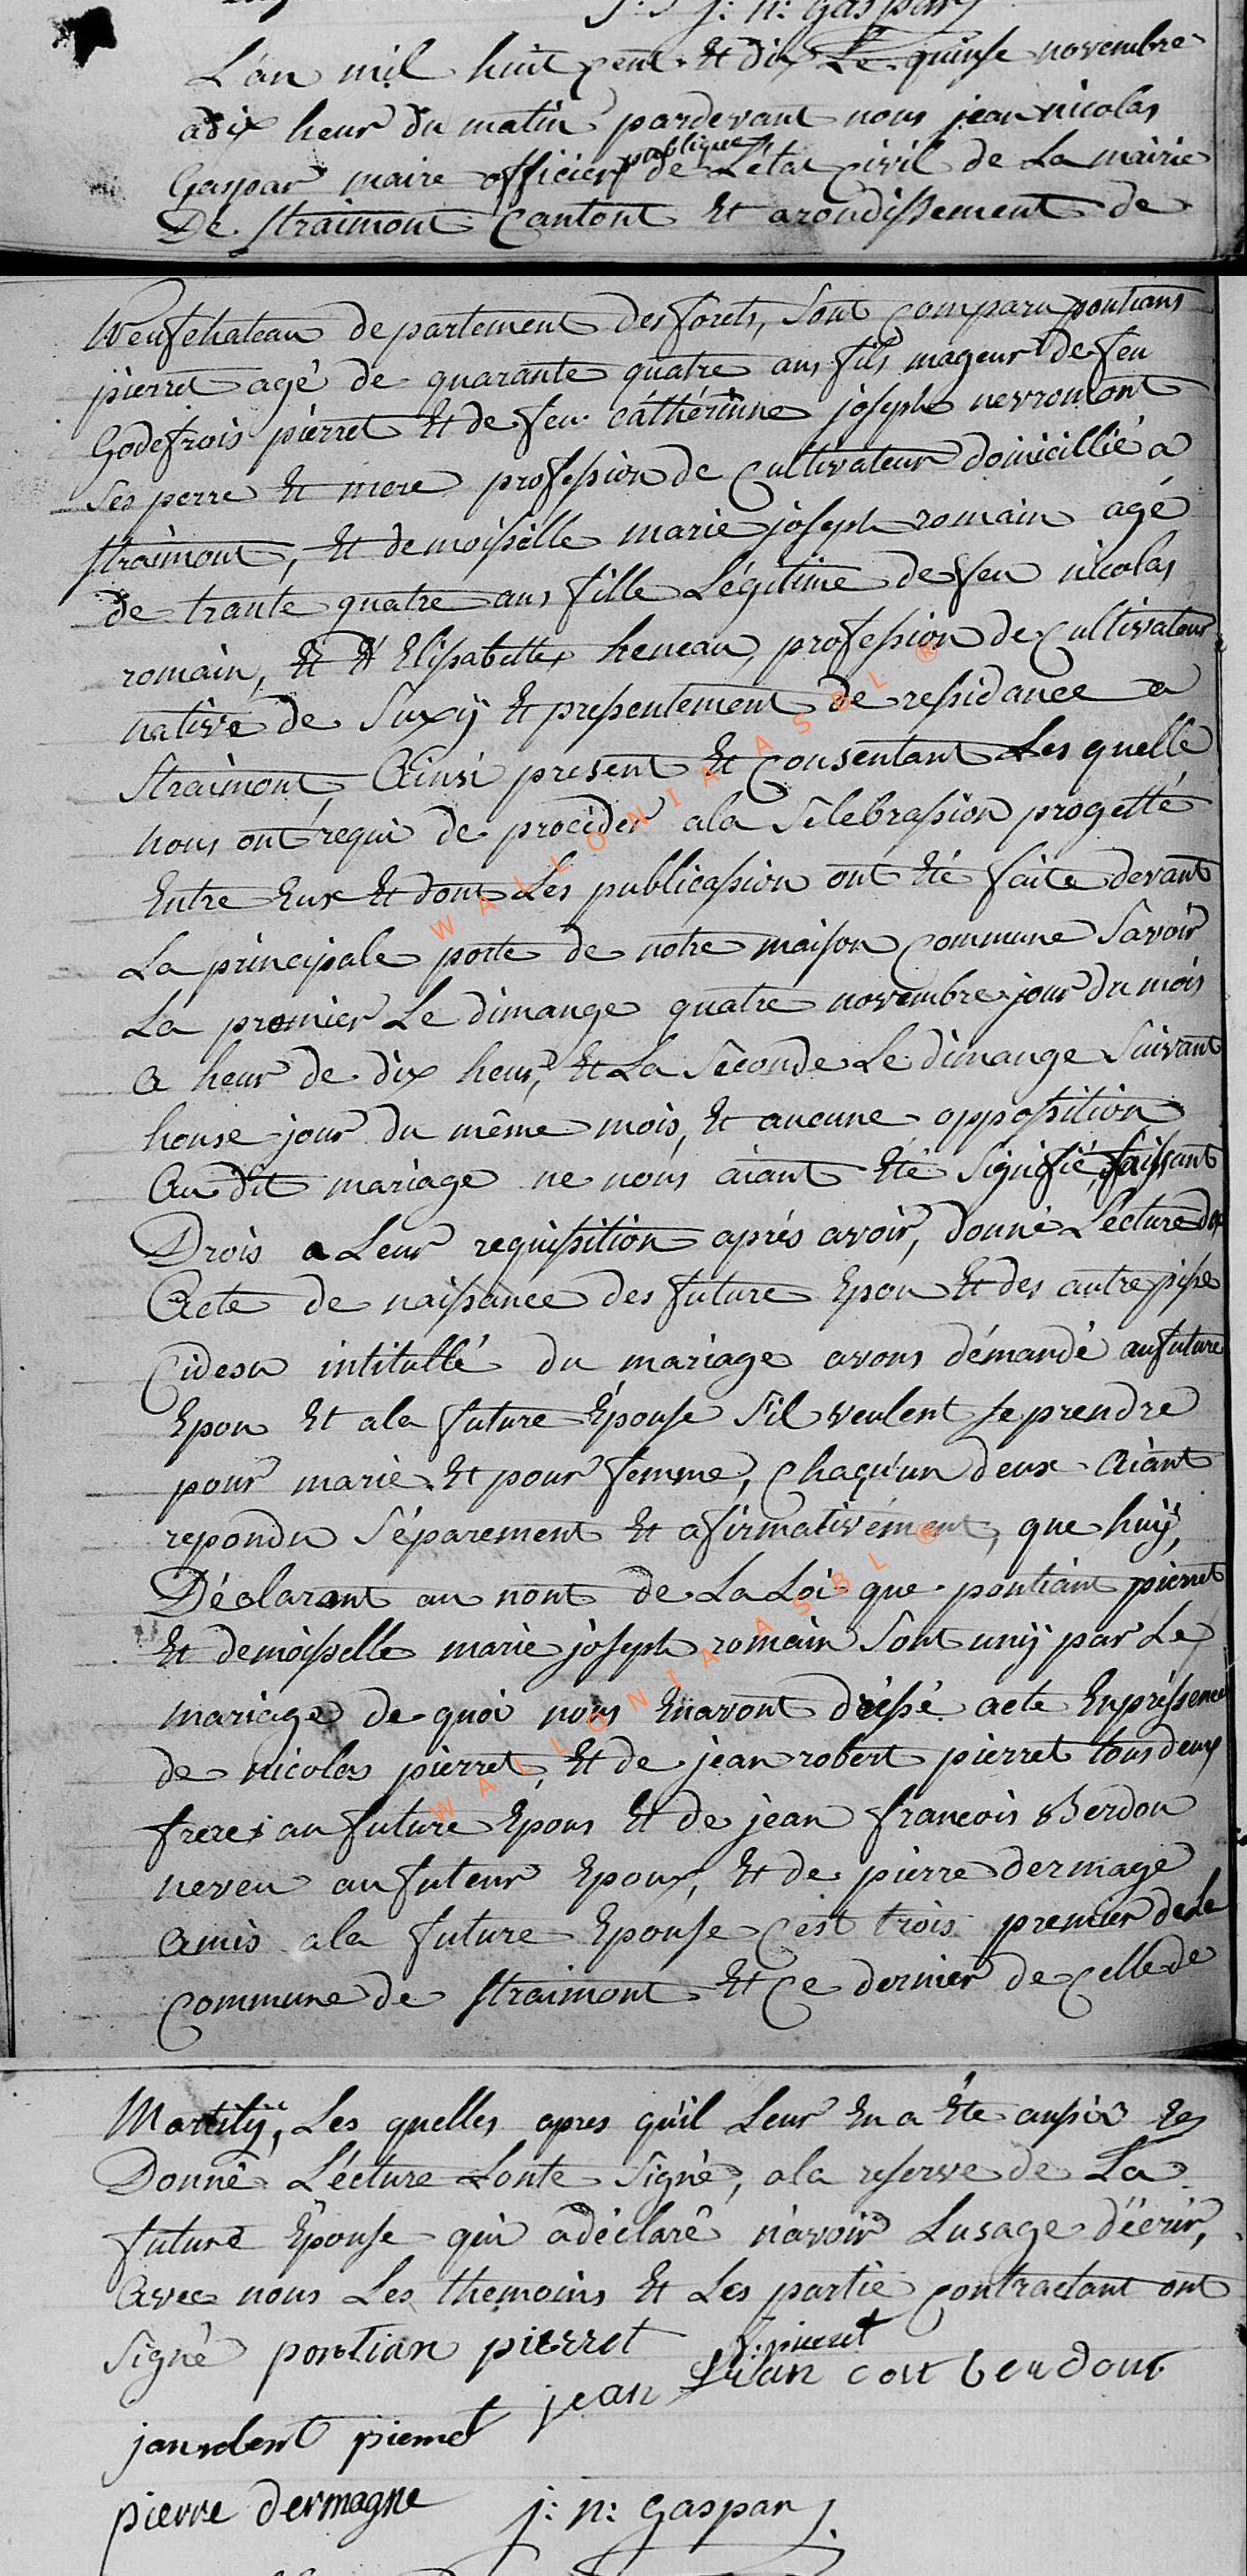 j: n: Gaspar
L'an mil huit cent Et dix Le quinse novembre
adix heur du matin pardevant nous jean nicolas
Gaspar maire officier publique de L'étac Civil de La mairie
De Straimont Cantont Et arondissement de
Neufchateau departement des forets, Sont Comparu pontians
pierret agé de quarante quatre ans fils mageur de feu
Godefrois pierret Et de feu cathérinne joseph nevromont
Ses perre Et mere profession de Cultivateur domicillié a
straimont, Et demoiselle marie joseph romain agé
de trante quatre ans fille Légitime de feu nicolas
romain, Et Elisabette heneau, profession de Cultivateur
native de Suxÿ Et presentement de residance a
Straimont, Ainsi present Et Consentant Les quelle
nous ont requi de procéder ala Selebrasion progetté
Entre Eux Et dont Les publicasion ont Eté faite devant
La principale porte de notre maison Commune Savoir
La premier Le dimange quatre novembre jour du mois
a heur de dix heur, Et La Séconde Le dimange Suivant
honse jour du même mois, Et aucune opposition
Au dit mariage ne nous aiant Eté Signifié, faissant
Drois a Leur requisition aprés avoir, donné Lécture de
Acte de naissance des future Epou Et des autre pise
Cidesu intitullé du mariage avons démandé au future
Epou Et ala future Épouse S'il veulent se prendre
pour marié Et pour femme, Chaqu'un deux Aiant
repondu Séparement Et afirmativément, que huÿ,
Déclarant au nont de La Loi que pontiant pierret
Et demoisselle marie joseph romain Sont unÿ par Le
mariage de quoi nous Enavont dréssé acte En préssence
de nicolas pierret, Et de jean robert pierret tous deux
frere au future Épous Et de jean francois Berdon
neveu au futeur Epoux, Et de pierre dermage
Amis ala future Epouse C'est trois premier de La
Commune de Straimont Et Ce dernier de Celle de
Martilÿ, Les quelles apres qu'il Leur En a Eté aussi
Donné Lécture Lonte Signé, ala reserve de La
future Épouse qui adéclaré n'avoir Lusage déérir,
Avec nous Les themoins Et Les partie Contractant ont
Signé pontian pierret
pierret
jean
pierret
pierre dermagne j: n: Gaspar
WALLONIA ASBL ®
WALLONIA ASBL ®